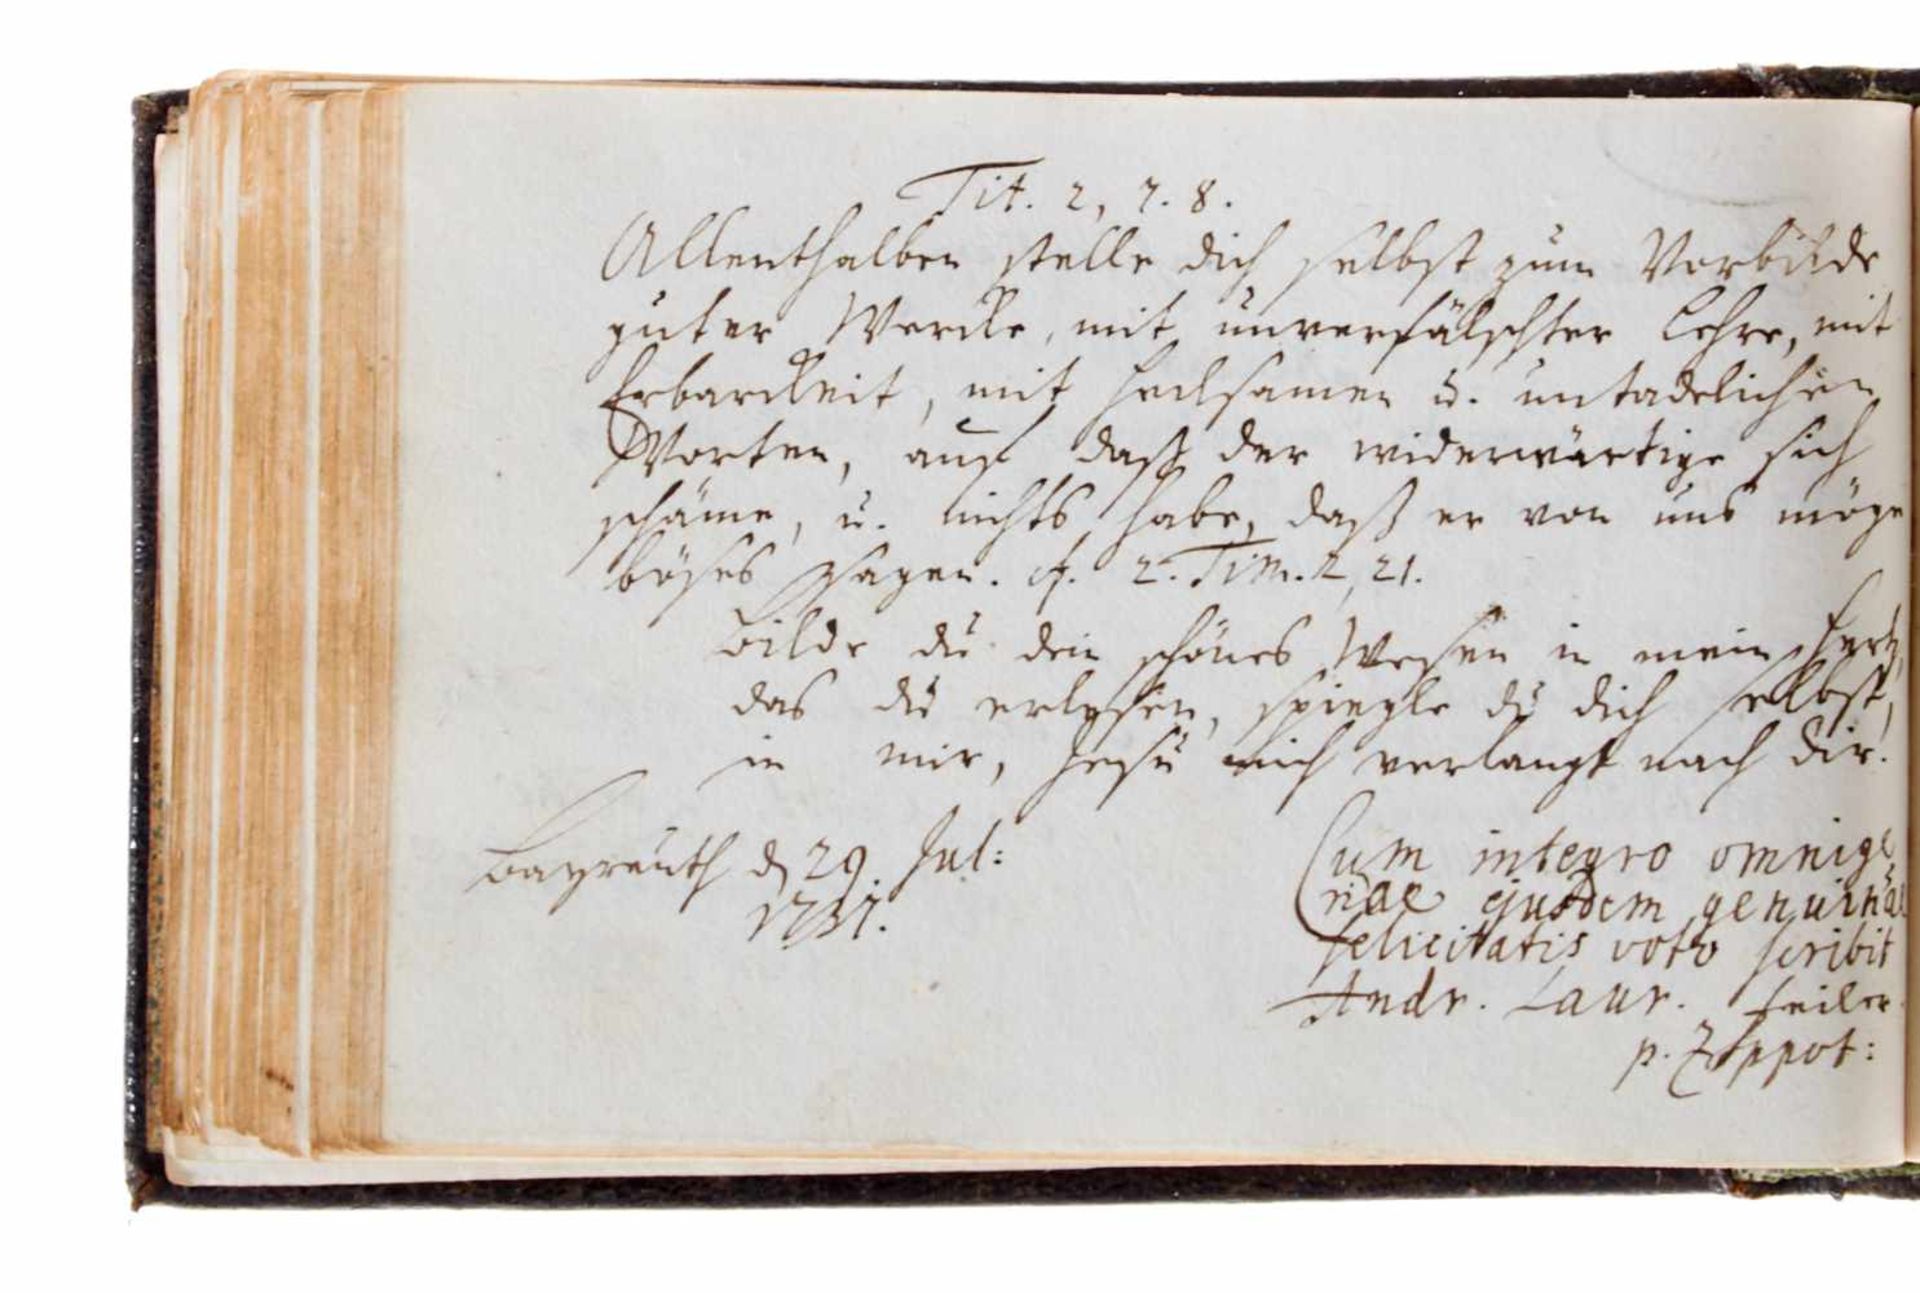 Tit. 2, 7. 8.
Allenthalben stelle dich selbst zum Vorbilde
guter Wercke, mit unverfälschter Lehre, mit
Erbarckeit, mit heilsamen u. untadelichen
Worten, auf daß der widerwärtige sich
schäme, u. nichts habe, daß er von uns möge
böses sagen. cf. 2. Tim. 2, 21.
Bilde du dein schönes Wesen in mein Hertz,
das du erlesen, spiegle du dich selbst,
in mir, Jesu mich verlangt nach dir.
Bayreuth d. 29. Jul:
1737.
Cum integro omnige
nae ejusdem genuinae
felicitatis voto scribit
Andr. Laur. Feiler
p. Zoppot: